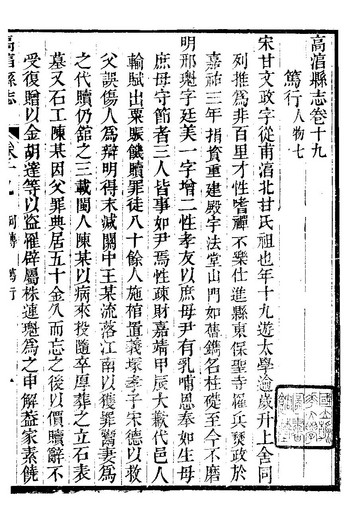 高淯縣志卷十九
篤行人物七
宋甘文政字從甫淯北甘氏祖也年十九遊太學逾歲升上舍同
列推爲非百里才性嗜禪不樂仕進縣東保聖寺罹兵燹政於
嘉祐三年捐資重建殿宇法堂山門如舊鐫名柱礎至今不磨
明邢魁字廷美一字增二性孝友以庶母尹有乳哺恩奉如生母
庶母守節者三人皆事如尹焉性疎財嘉靖甲辰大歉代邑人
輸賦出粟賑饑贖罪徒八十餘人施棺置義塚孝子宋德以救
父誤傷人爲辯明得末減關中王某流落江南以獲罪鬻妻爲
之代贖仍舘之三載閩人陳某以病來投隨卒厚葬之立石表
墓又石工陳某因父罪典居五十金久而忘之後以價贖辭不
受復贈以金胡達等以盜罹辟屬株連魁爲之申解葢家素饒
高淯縣志
卷十九
篤行